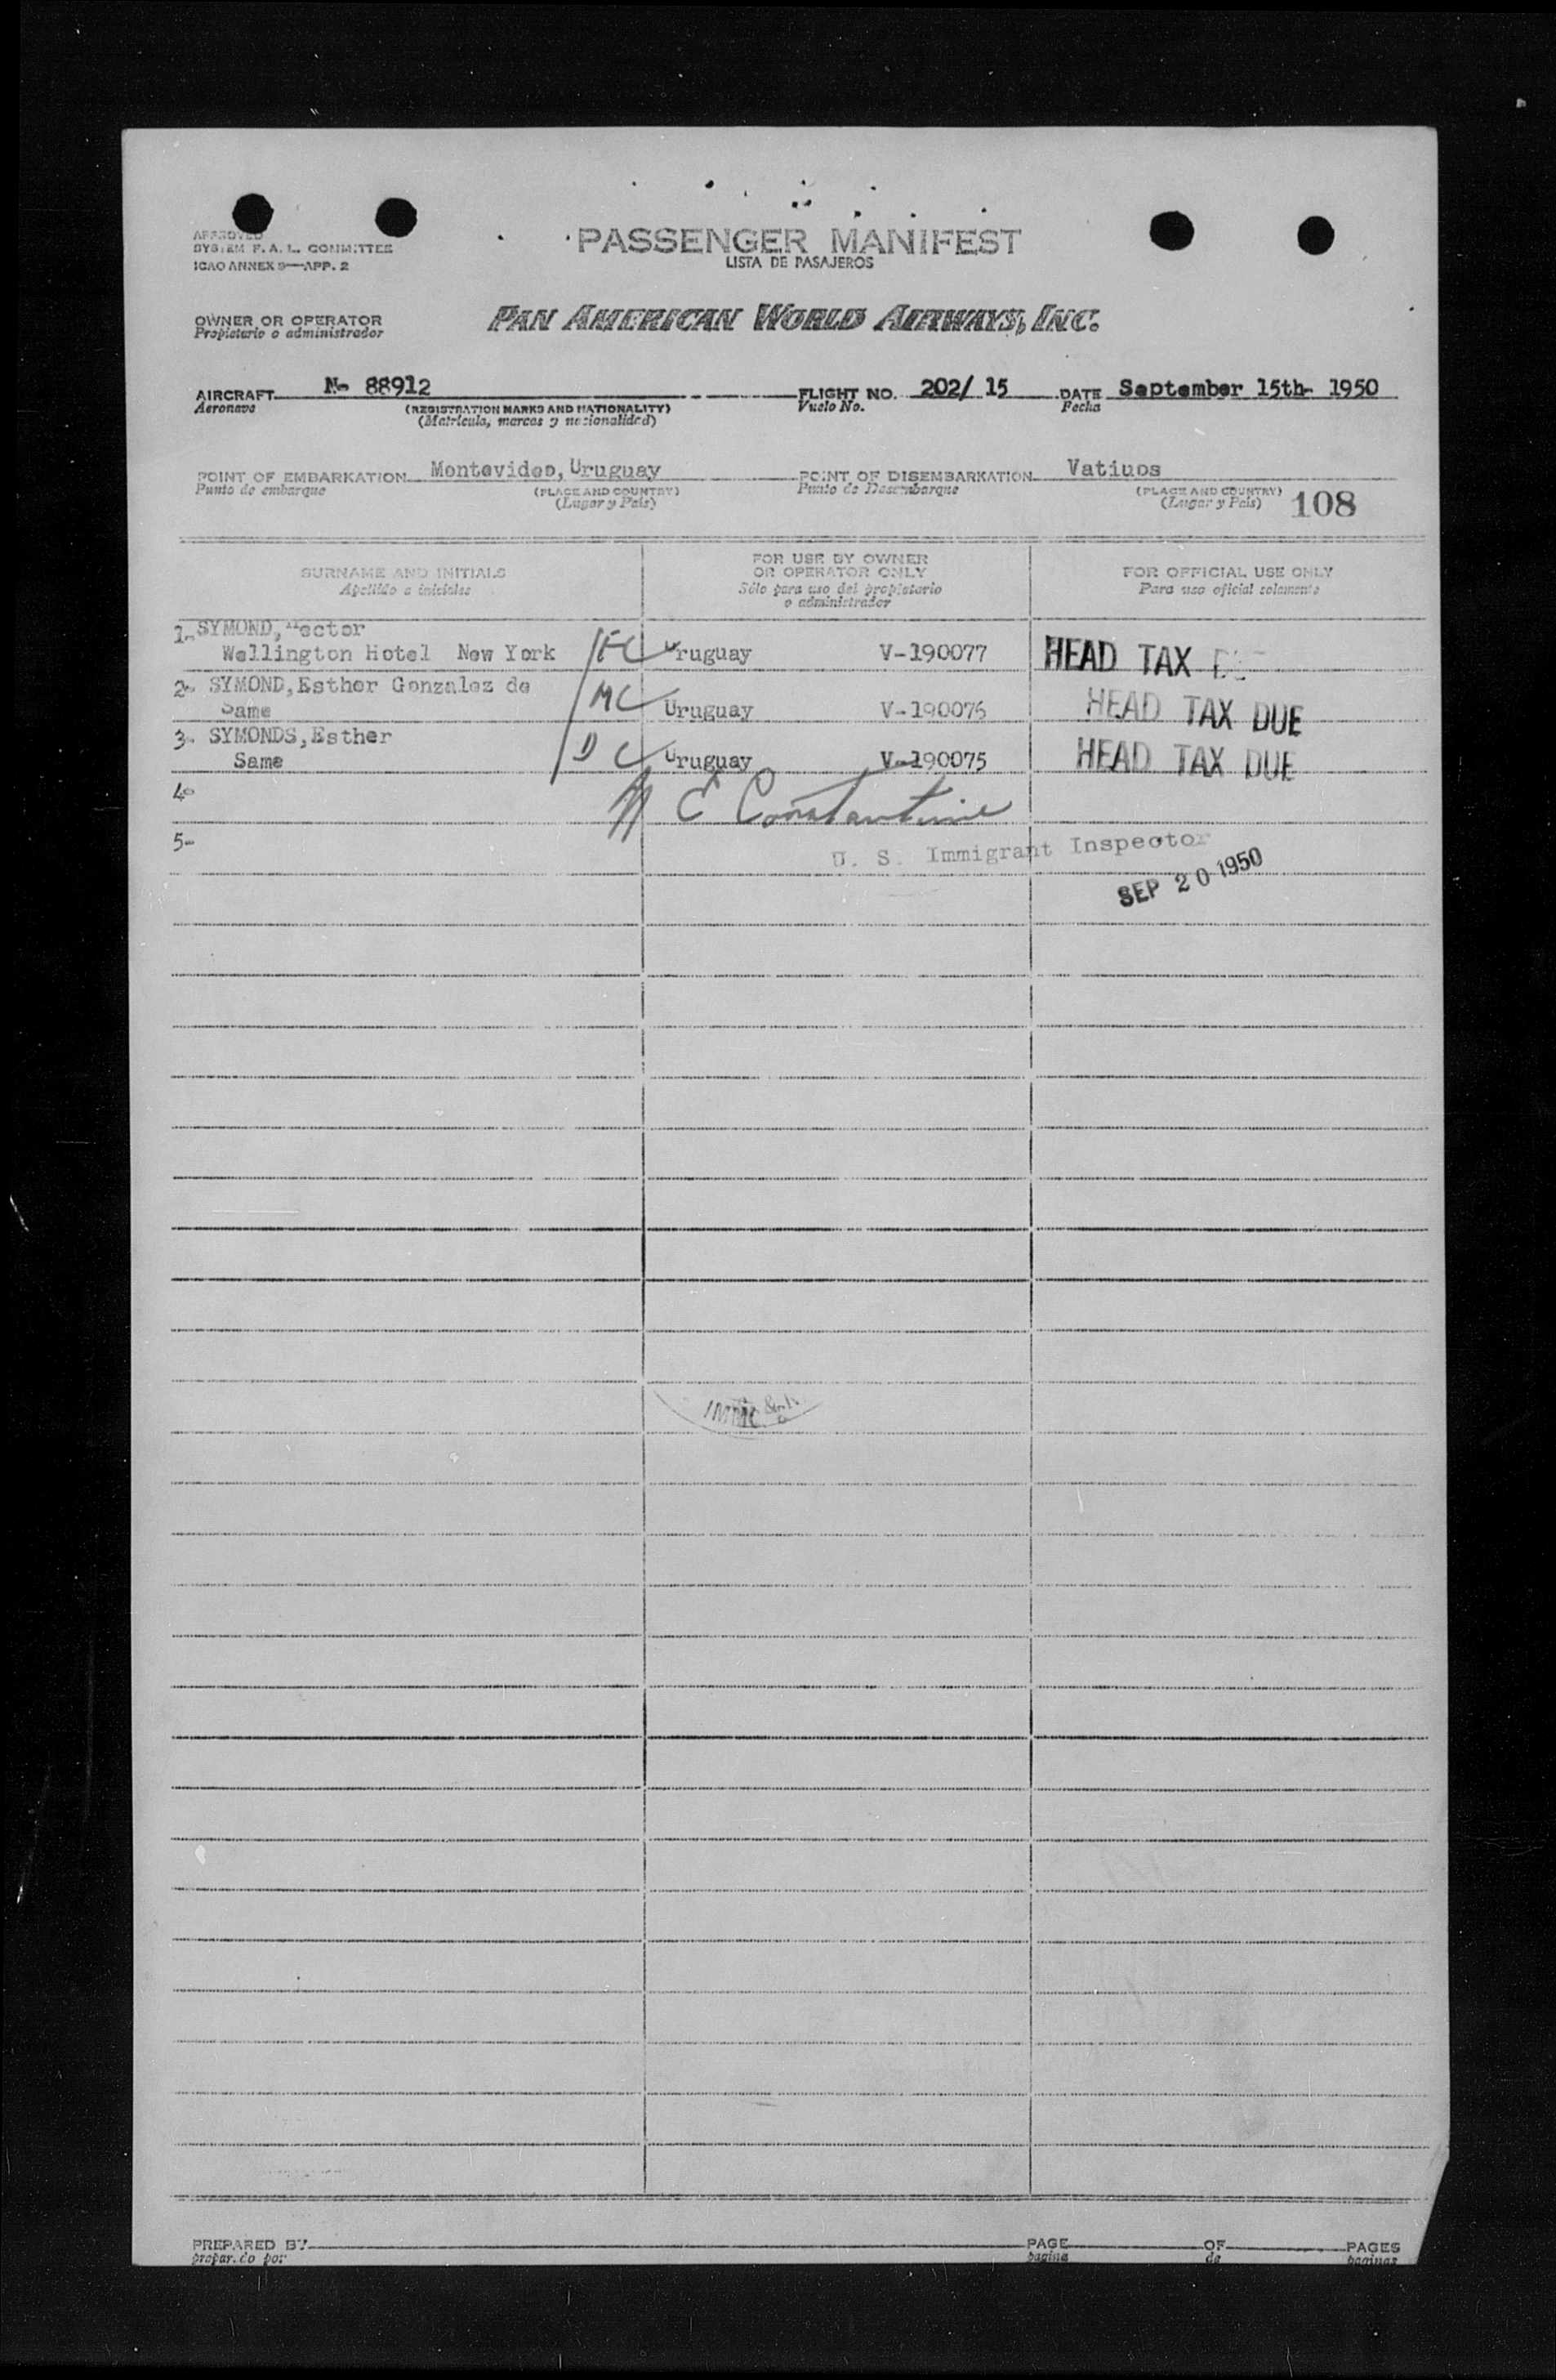 APPROVED
SYSTEM F. A. L. COMMITTEE
ICAO ANNEX 9—APP. 2
PASSENGER MANIFEST
LISTA DE PASAJEROS
OWNER OR OPERATOR
Propietario o administrador
PAN AMERICAN WORLD AIRWAYS, INC.
AIRCRAFT N- 88912 FLIGHT NO. 202/ 15 DATE September 15th- 1950
Aeronave (REGISTRATION MARKS AND NATIONALITY) Vuelo No. Fecha
(Matrícula, marcas y nacionalidad)
POINT OF EMBARKATION Montevideo, Uruguay POINT OF DISEMBARKATION Vatiuos
Punto de embarque (PLACE AND COUNTRY) Punto de Desembarque (PLACE AND COUNTRY)
(Lugar y País) (Lugar y País) 108
SURNAME AND INITIALS
Apellido e iniciales
FOR USE BY OWNER
OR OPERATOR ONLY
Sólo para uso del propietario
o administrador
FOR OFFICIAL USE ONLY
Para uso oficial solamente
1- SYMOND, Hector
Wellington Hotel New York Uruguay V-190077 HEAD TAX
2- SYMOND, Esther Gonzalez de
Same MC Uruguay V-190076 HEAD TAX DUE
3- SYMONDS, Esther
Same D C Uruguay V-190075 HEAD TAX DUE
4-
E Constantine
5-
U. S. Immigrant Inspector
SEP 20 1950
PREPARED BY PAGE OF PAGES
preparado por pagina de paginas